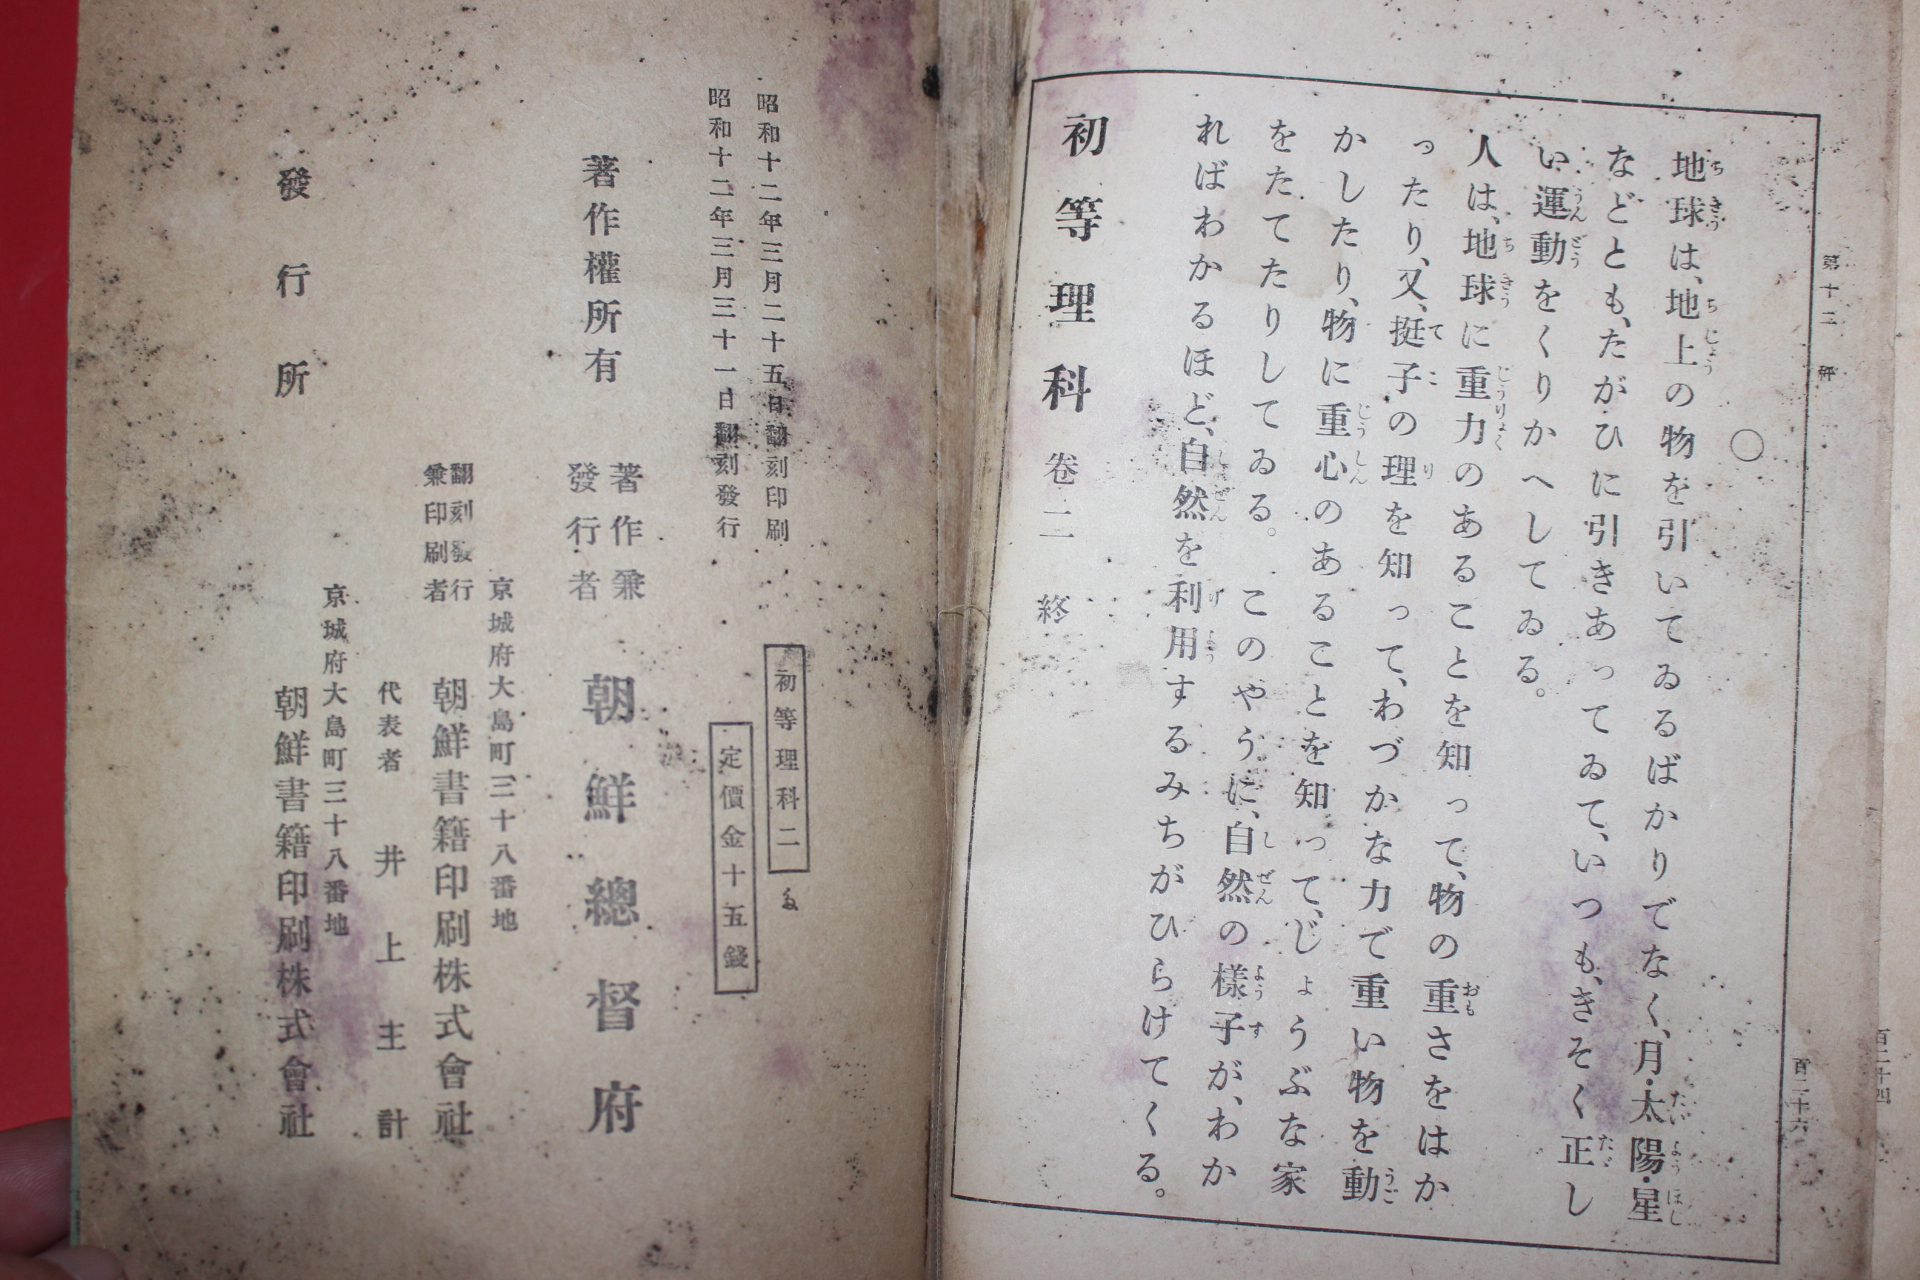 第十二 秤
百二十六
百二十四
○
地球は、地上の物を引いてゐるばかりでなく、月・太陽・星
などとも、たがひに引きあってゐて、いつも、きそく正し
い運動をくりかへしてゐる。
人は、地球に重力のあることを知って、物の重さをはか
ったり、又、挺子の理を知って、わづかな力で重い物を動
かしたり、物に重心のあることを知って、じょうぶな家
をたてたりしてゐる。このやうに、自然の様子が、わか
ればわかるほど、自然を利用するみちがひらけてくる。
初等理科 卷二 終
昭和十二年三月二十五日翻刻印刷
昭和十二年三月三十一日翻刻發行
初等理科二
定價金十五錢
著作權所有
著作兼
發行者
朝鮮總督府
京城府大島町三十八番地
翻刻發行
兼印刷者
朝鮮書籍印刷株式會社
代表者 井上主計
京城府大島町三十八番地
發行所
朝鮮書籍印刷株式會社